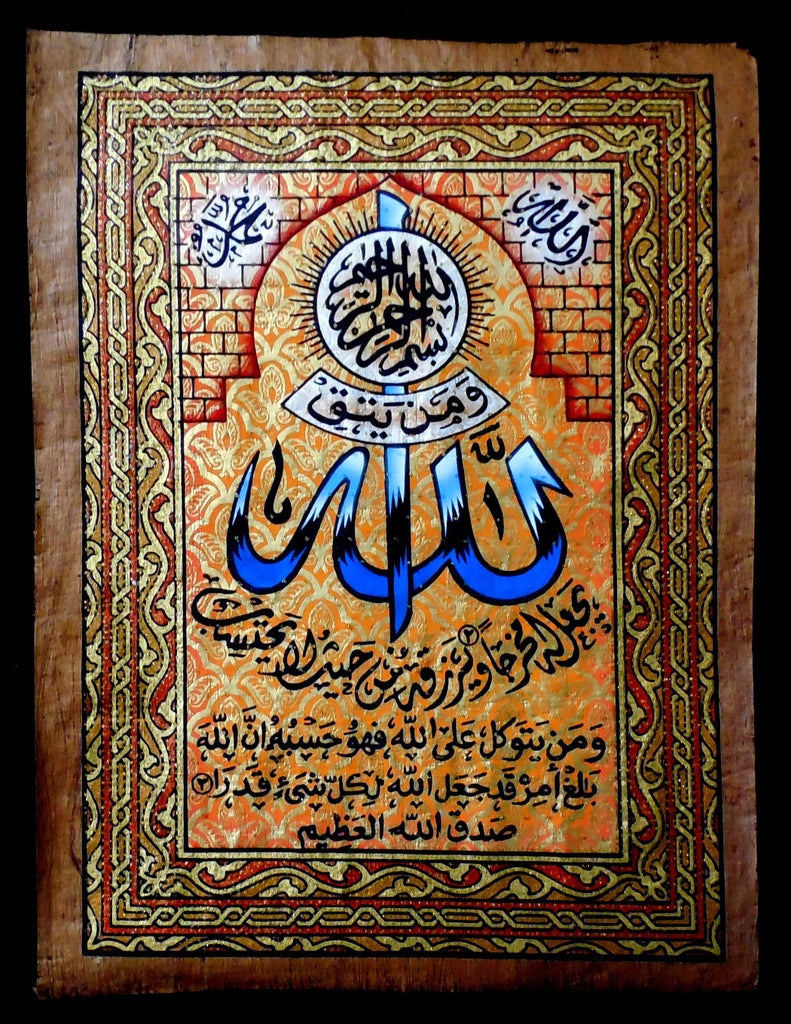 الله
محمد
بسم الله الرحمن الرحيم
وَمَن يَتَّقِ
اللّٰه
يجعل له مخرجًا ٢ ويرزقه من حيث لا يحتسب
وَمَن يَتَوَكَّل عَلَى اللّٰه فَهُوَ حَسْبُهُ إنَّ اللّٰهَ
بَلِغُ أمرِهِ قَد جَعَل اللّٰه لِكلِّ شَيءٍ قَدرًا ٣
صَدَقَ اللّٰه العَظِيم